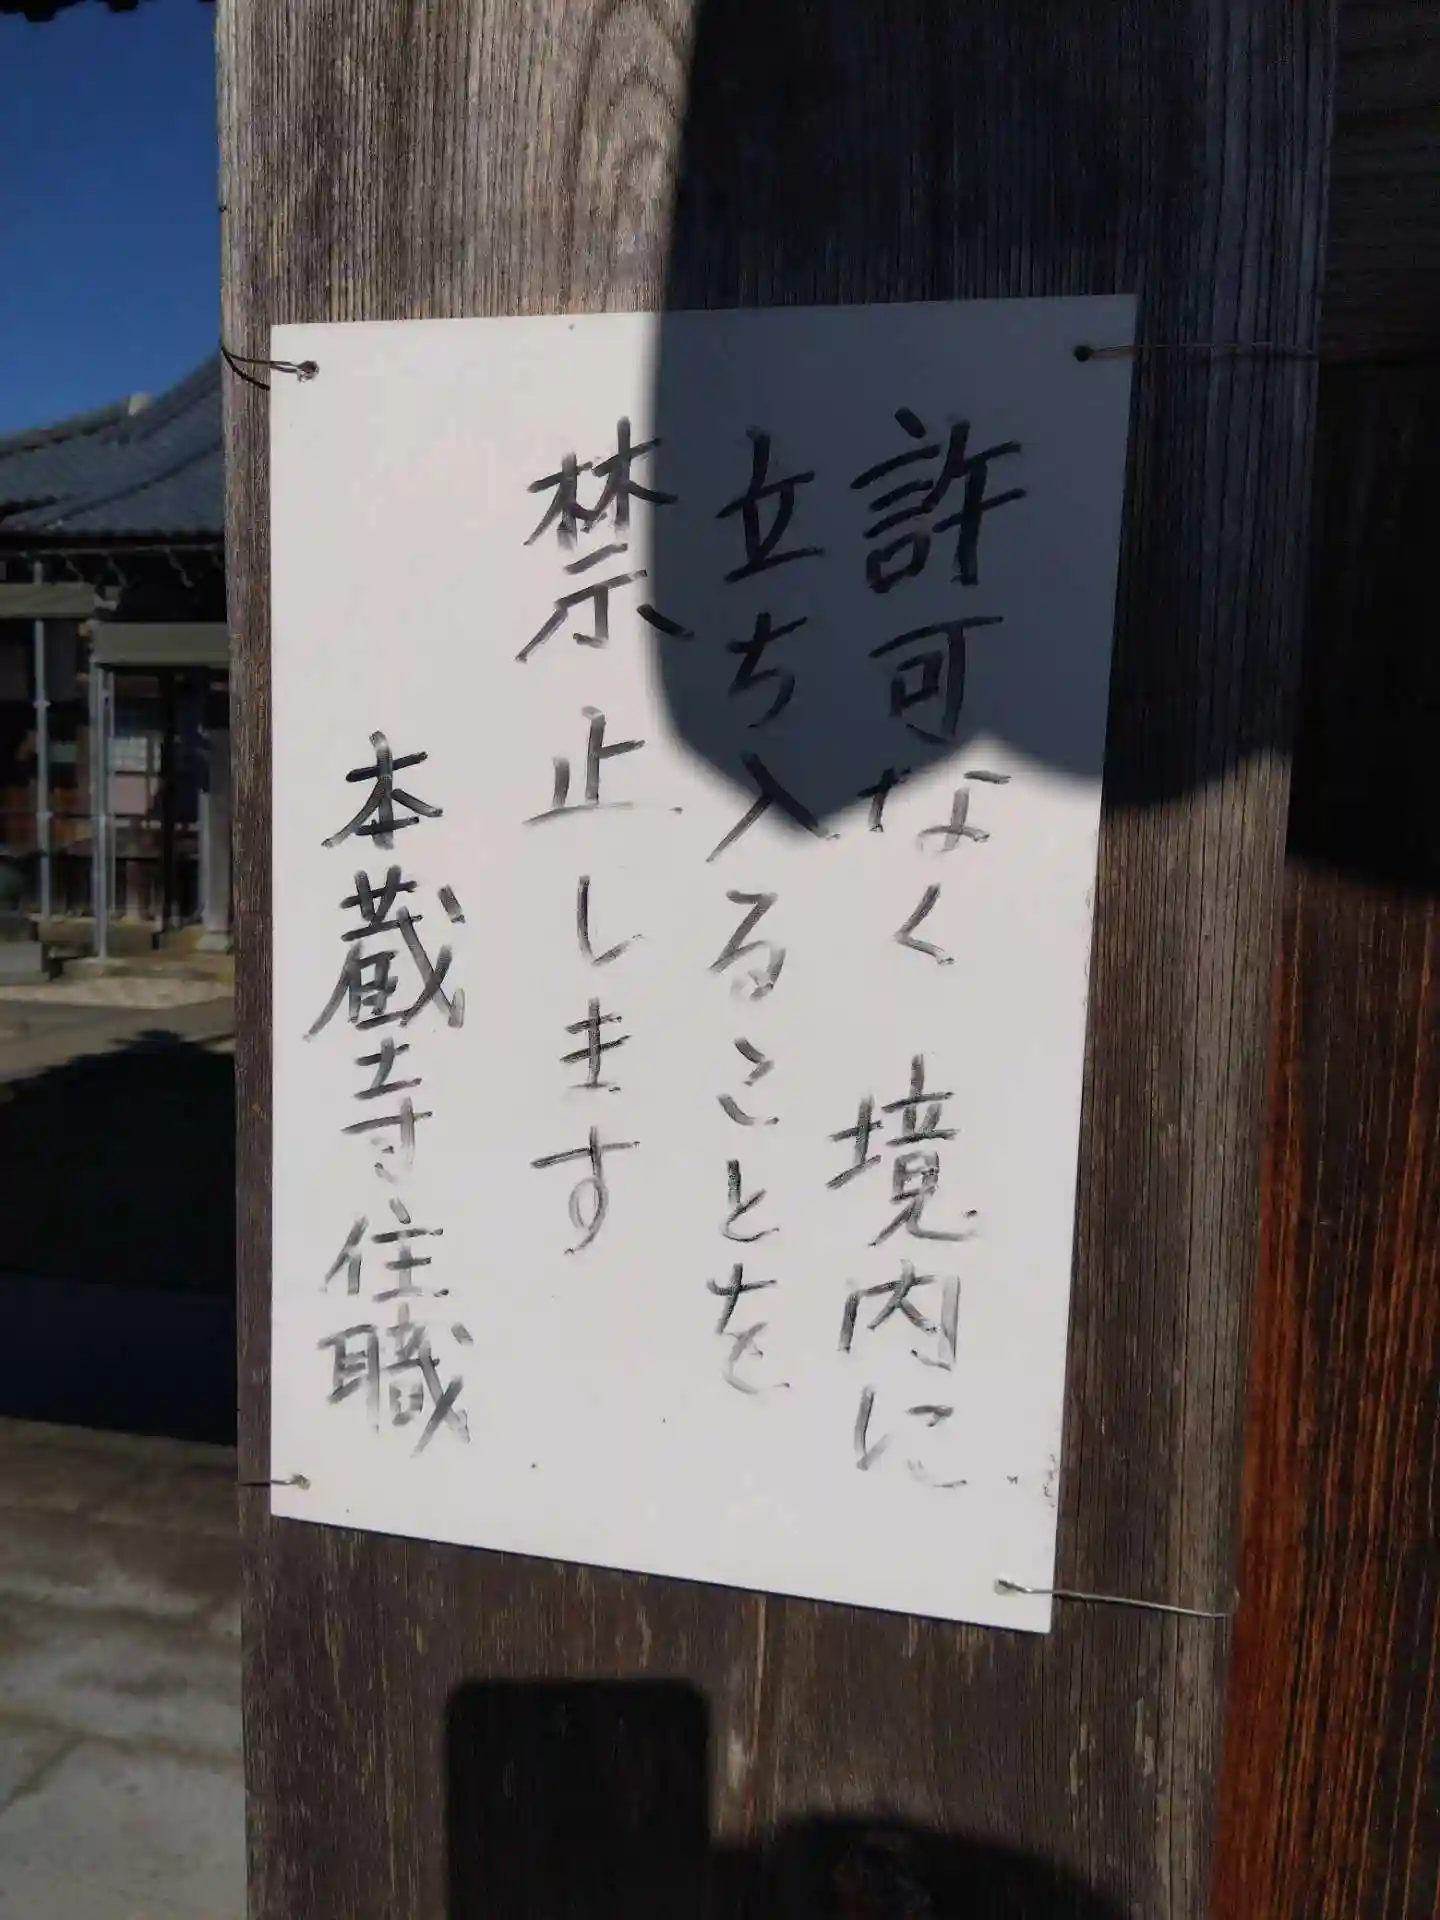 許可なく 境内に
立ち入ることを
禁止します
本蔵寺住職